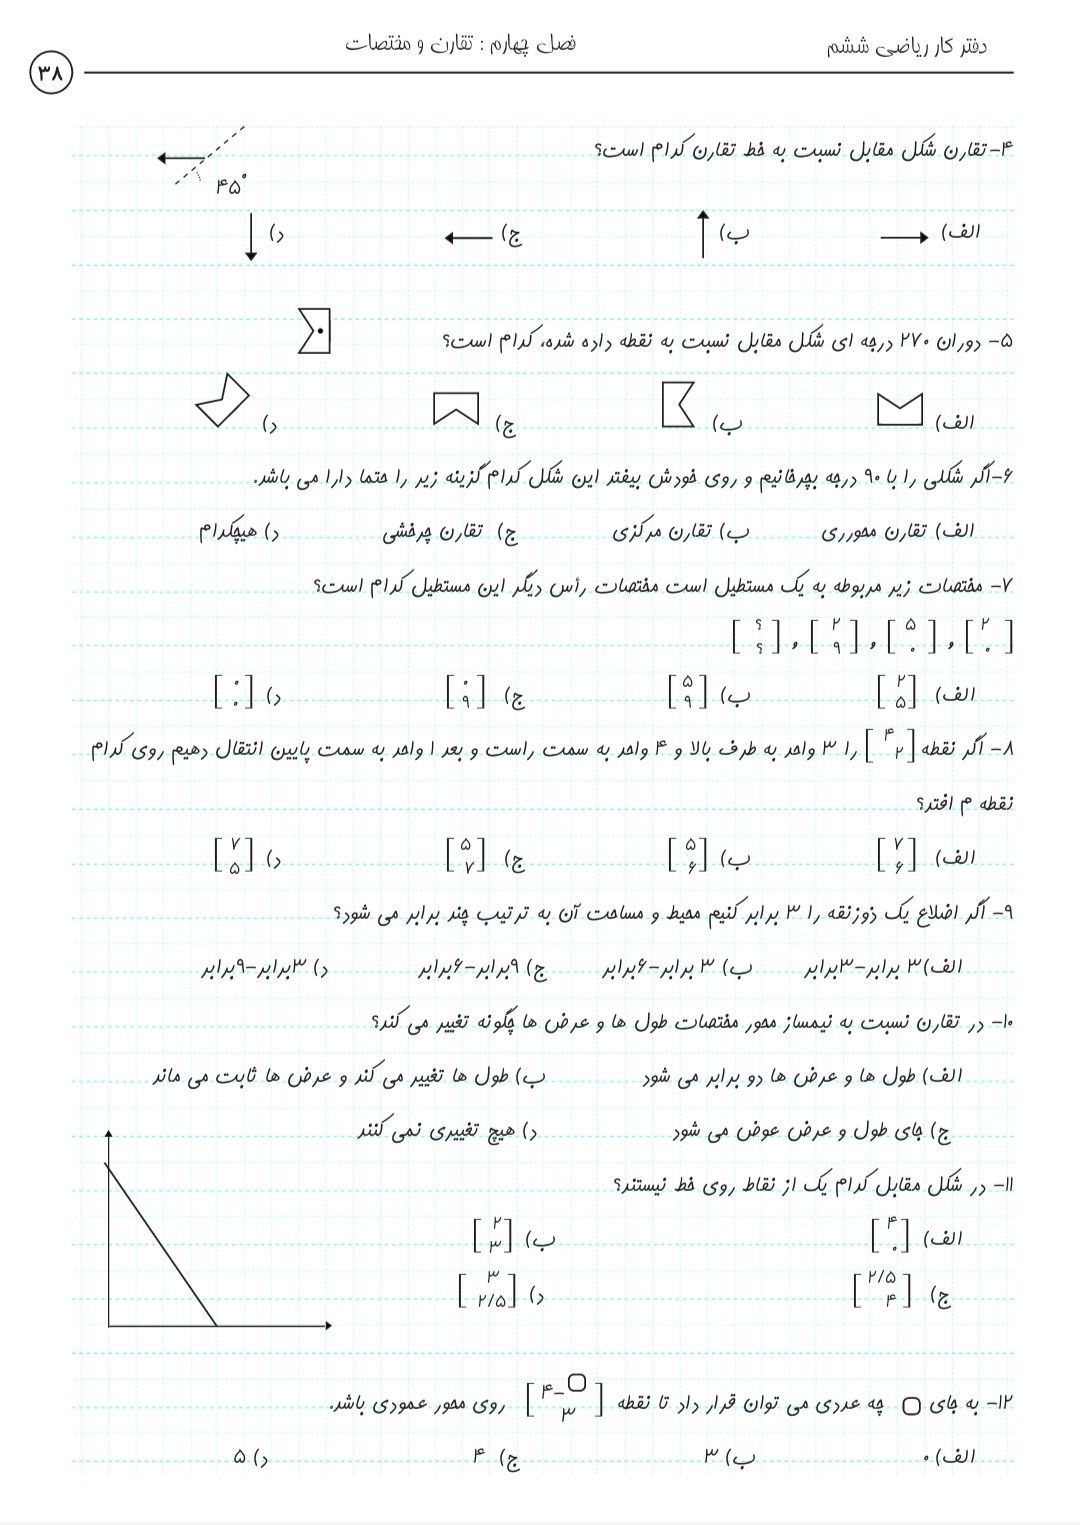 دفتر کار ریاضی ششم
فصل چهارم : تقارن و مختصات
۳۸
۴- تقارن شکل مقابل نسبت به خط تقارن کدام است؟
۴۵°
الف)
ب)
ج)
د)
۵- دوران ۲۷۰ درجه ای شکل مقابل نسبت به نقطه داده شده، کدام است؟
الف)
ب)
ج)
د)
۶-اگر شکلی را با ۹۰ درجه بچرخانیم و روی خودش بیفتر این شکل کدام گزینه زیر را حتما دارا می باشد.
الف) تقارن محورری
ب) تقارن مرکزی
ج) تقارن چرخشی
د) هیچکدام
۷- مختصات زیر مربوطه به یک مستطیل است مختصات رأس دیگر این مستطیل کدام است؟
[۲ ۰] , [۵ ۰] , [۲ ۹] , [؟ ؟]
الف) [۲ ۵]
ب) [۵ ۹]
ج) [۰ ۹]
د) [۰ ۰]
۸- اگر نقطه [۴ ۲] را ۳ واحد به طرف بالا و ۴ واحد به سمت راست و بعد ۱ واحد به سمت پایین انتقال دهیم روی کدام
نقطه م افتد؟
الف) [۷ ۶]
ب) [۵ ۶]
ج) [۵ ۷]
د) [۷ ۵]
۹- اگر اضلاع یک ذوزنقه را ۳ برابر کنیم محیط و مساحت آن به ترتیب چند برابر می شود؟
الف) ۳ برابر-۳برابر
ب) ۳ برابر-۶برابر
ج) ۹برابر-۶برابر
د) ۳برابر-۹برابر
۱۰- در تقارن نسبت به نیمساز محور مختصات طول ها و عرض ها چگونه تغییر می کند؟
الف) طول ها و عرض ها دو برابر می شود
ب) طول ها تغییر می کند و عرض ها ثابت می ماند
ج) جای طول و عرض عوض می شود
د) هیچ تغییری نمی کنند
۱۱- در شکل مقابل کدام یک از نقاط روی خط نیستند؟
الف) [۴ ۰]
ب) [۲ ۳]
ج) [۲/۵ ۴]
د) [۳ ۲/۵]
۱۲- به جای ▢ چه عددی می توان قرار داد تا نقطه [۴-▢ ۳] روی محور عمودی باشد.
الف) ۰
ب) ۳
ج) ۴
د) ۵